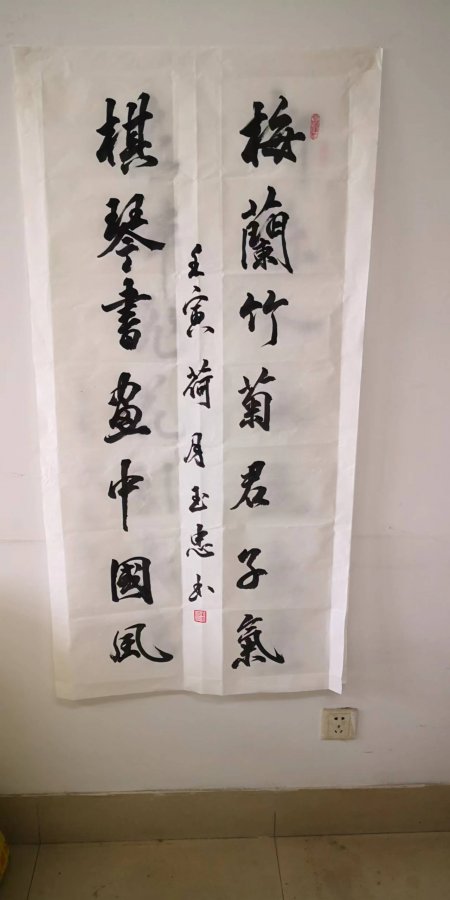 梅蘭竹菊君子氣
棋琴書畫中國風
壬寅荷月玉忠书